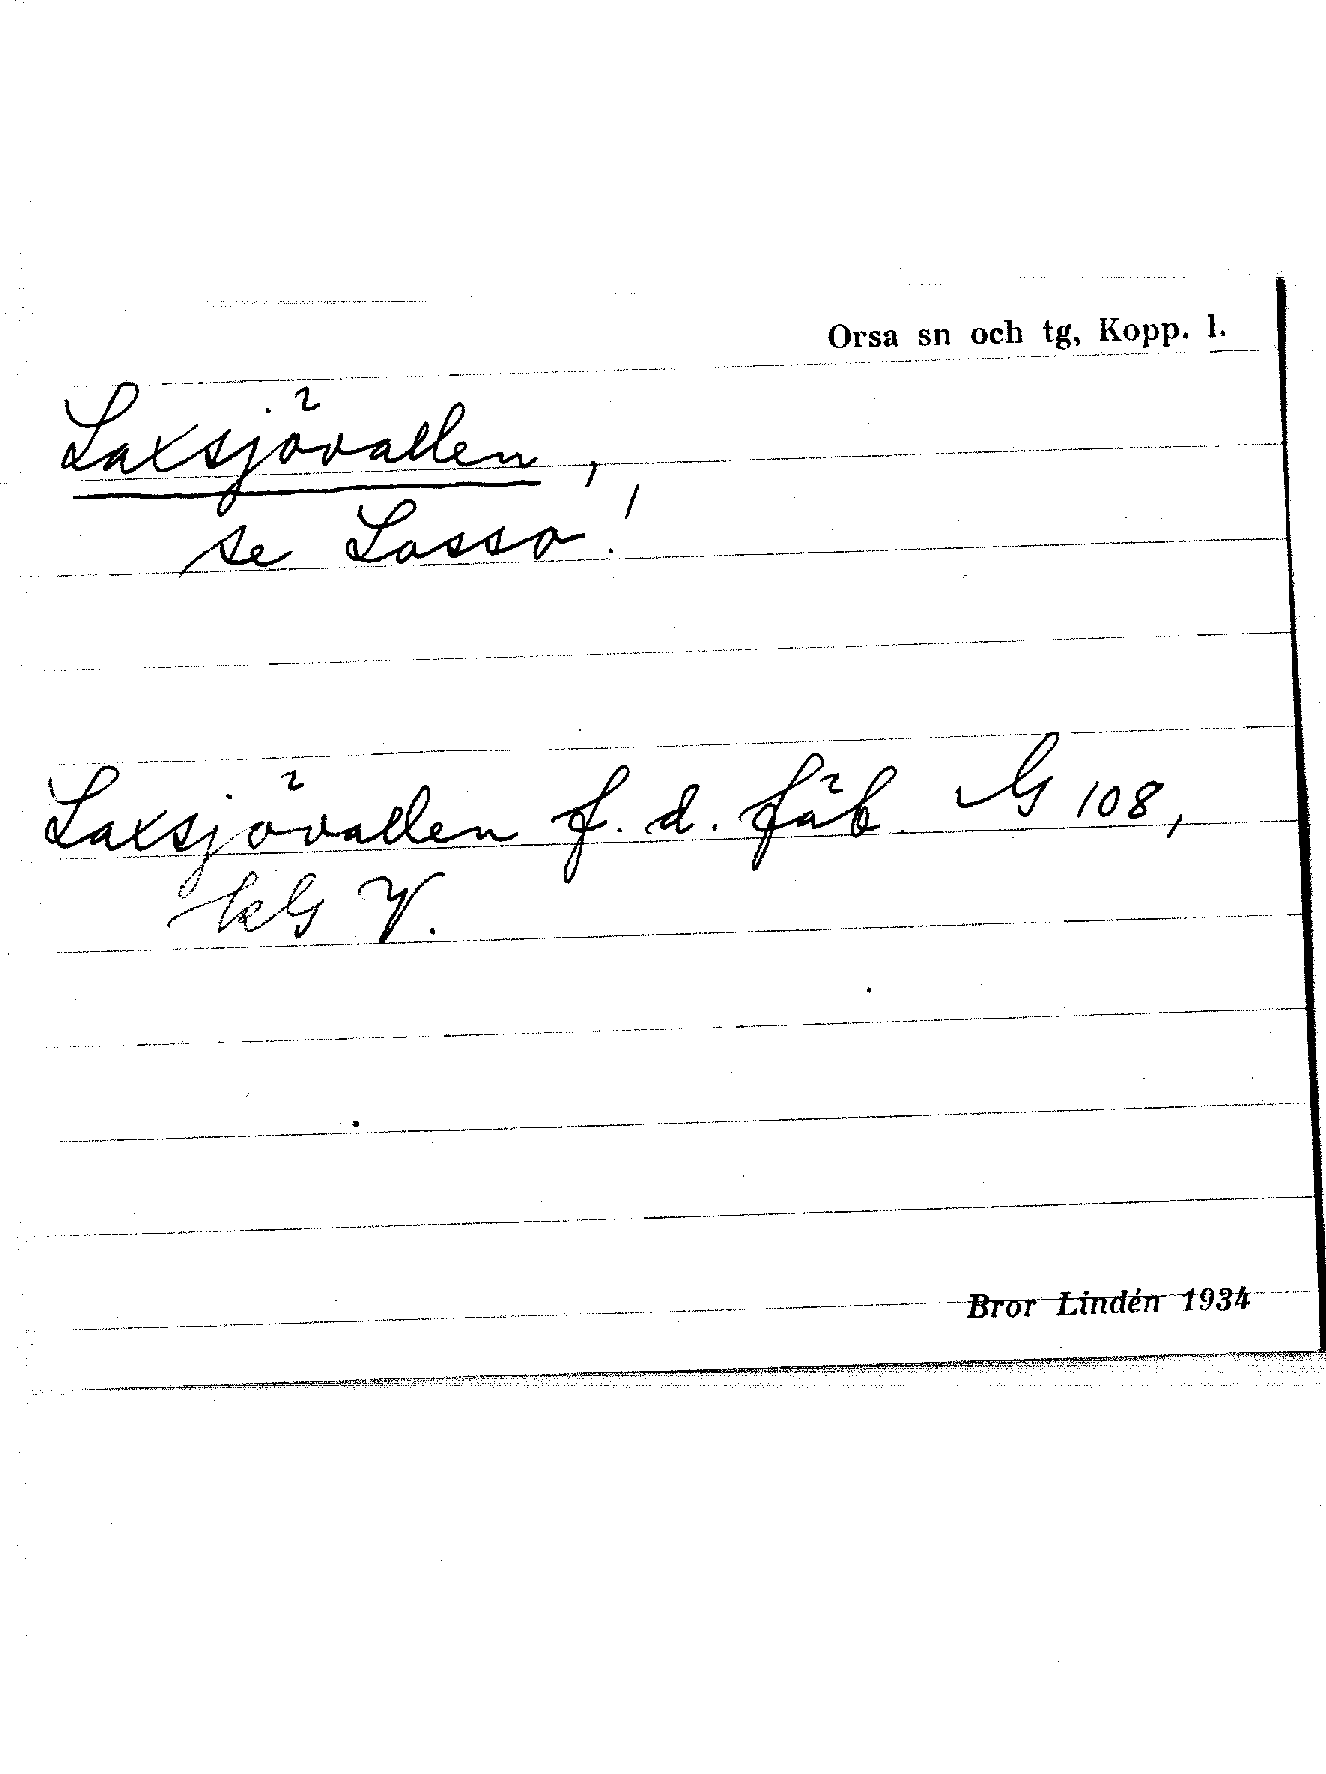 Orsa sn och tg, Kopp. l.
Laxsjövallen,
se Lasso!
Laxsjövallen f. d. fäb G 108,
V.
Bror Lindén 1934